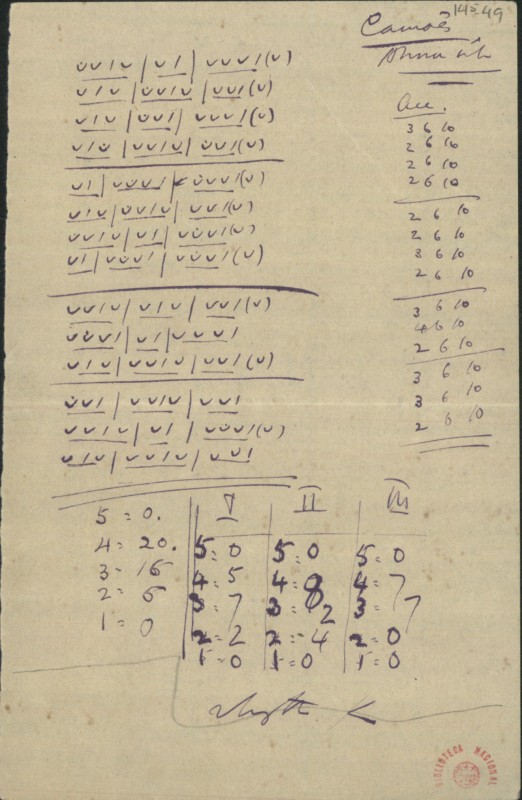 14⁵-49
Camões
Alma m/
∪∪/∪ | ∪/ | ∪∪∪/(∪)
∪/∪ | ∪∪/∪ | ∪∪/(∪)
∪/∪ | ∪∪/ | ∪∪∪/(∪)
∪/∪ | ∪∪/∪ | ∪∪/(∪)
∪/ | ∪∪∪/ | ∪∪∪/(∪)
∪/∪ | ∪∪/∪ | ∪∪/(∪)
∪∪/∪ | ∪/ | ∪∪∪/(∪)
∪/ | ∪∪∪/ | ∪∪∪/(∪)
∪∪/∪ | ∪/∪ | ∪∪/(∪)
∪∪∪/ | ∪/ | ∪∪∪/
∪/∪ | ∪∪/∪ | ∪∪/(∪)
∪∪/ | ∪∪/∪ | ∪∪/
∪∪/∪ | ∪/ | ∪∪∪/(∪)
∪/∪ | ∪∪/∪ | ∪∪/
Acc.
3 6 10
2 6 10
2 6 10
2 6 10
2 6 10
2 6 10
3 6 10
2 6 10
3 6 10
4 6 10
2 6 10
3 6 10
3 6 10
2 6 10
5 = 0.
4 = 20.
3 = 16
2 = 6
1 = 0
I
5 = 0
4 = 5
3 = 7
2 = 2
1 = 0
II
5 = 0
4 = 8
3 = 2
2 = 4
1 = 0
III
5 = 0
4 = 7
3 = 7
2 = 0
1 = 0
Rhyth.
BIBLIOTECA NACIONAL